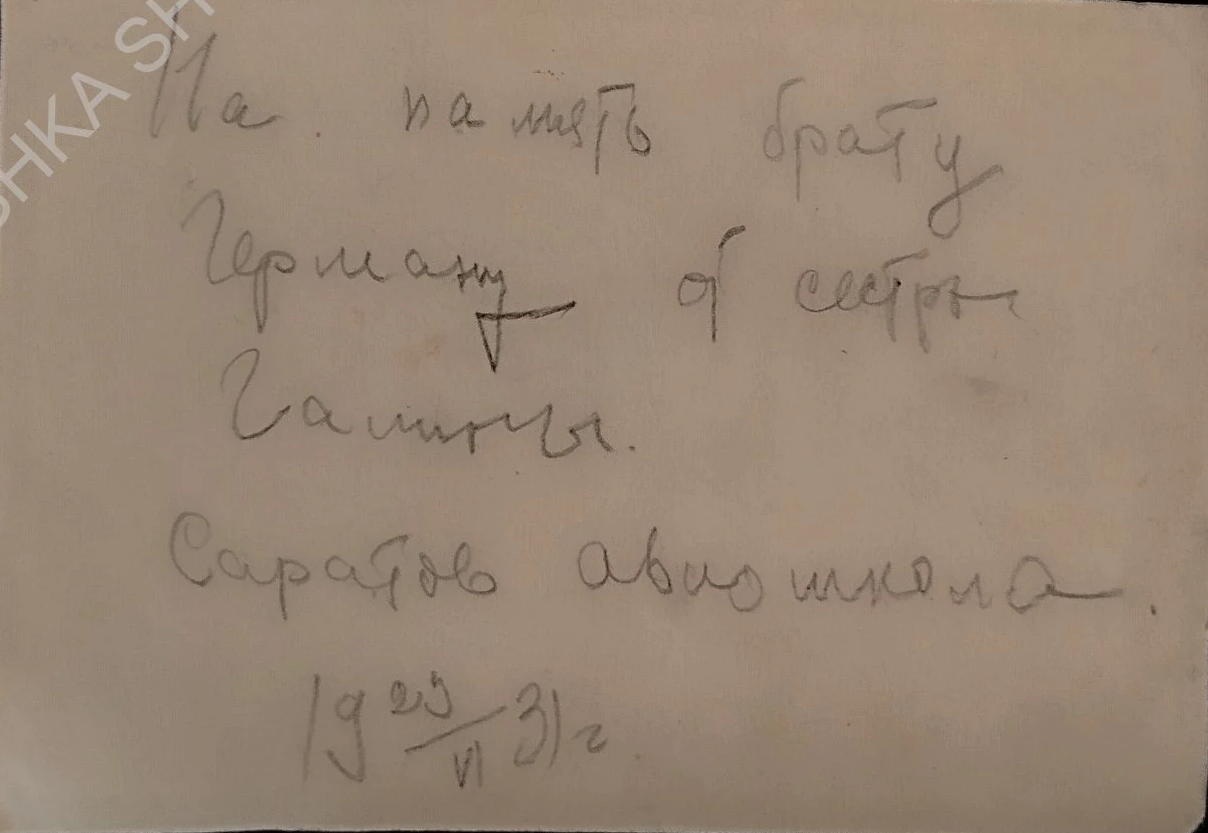 SHKA SH
На память брату
Герману от сестры
Галины.
Саратов авиошкола.
19 23/VI 31 г.